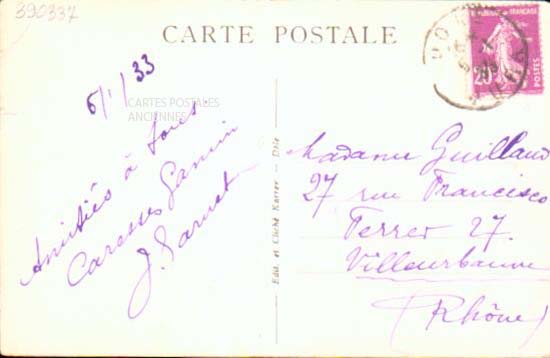 390337
CARTE POSTALE
REPUBLIQUE FRANÇAISE
20c
POSTES
6/1/33
CARTES POSTALES
ANCIENNES
Amitiés à tous
Caresses
J.
Edit. et Cliché Karrer — Dôle
Madame Guilland
27 rue Francisco
Ferrer 27.
Villeurbanne
(Rhône)